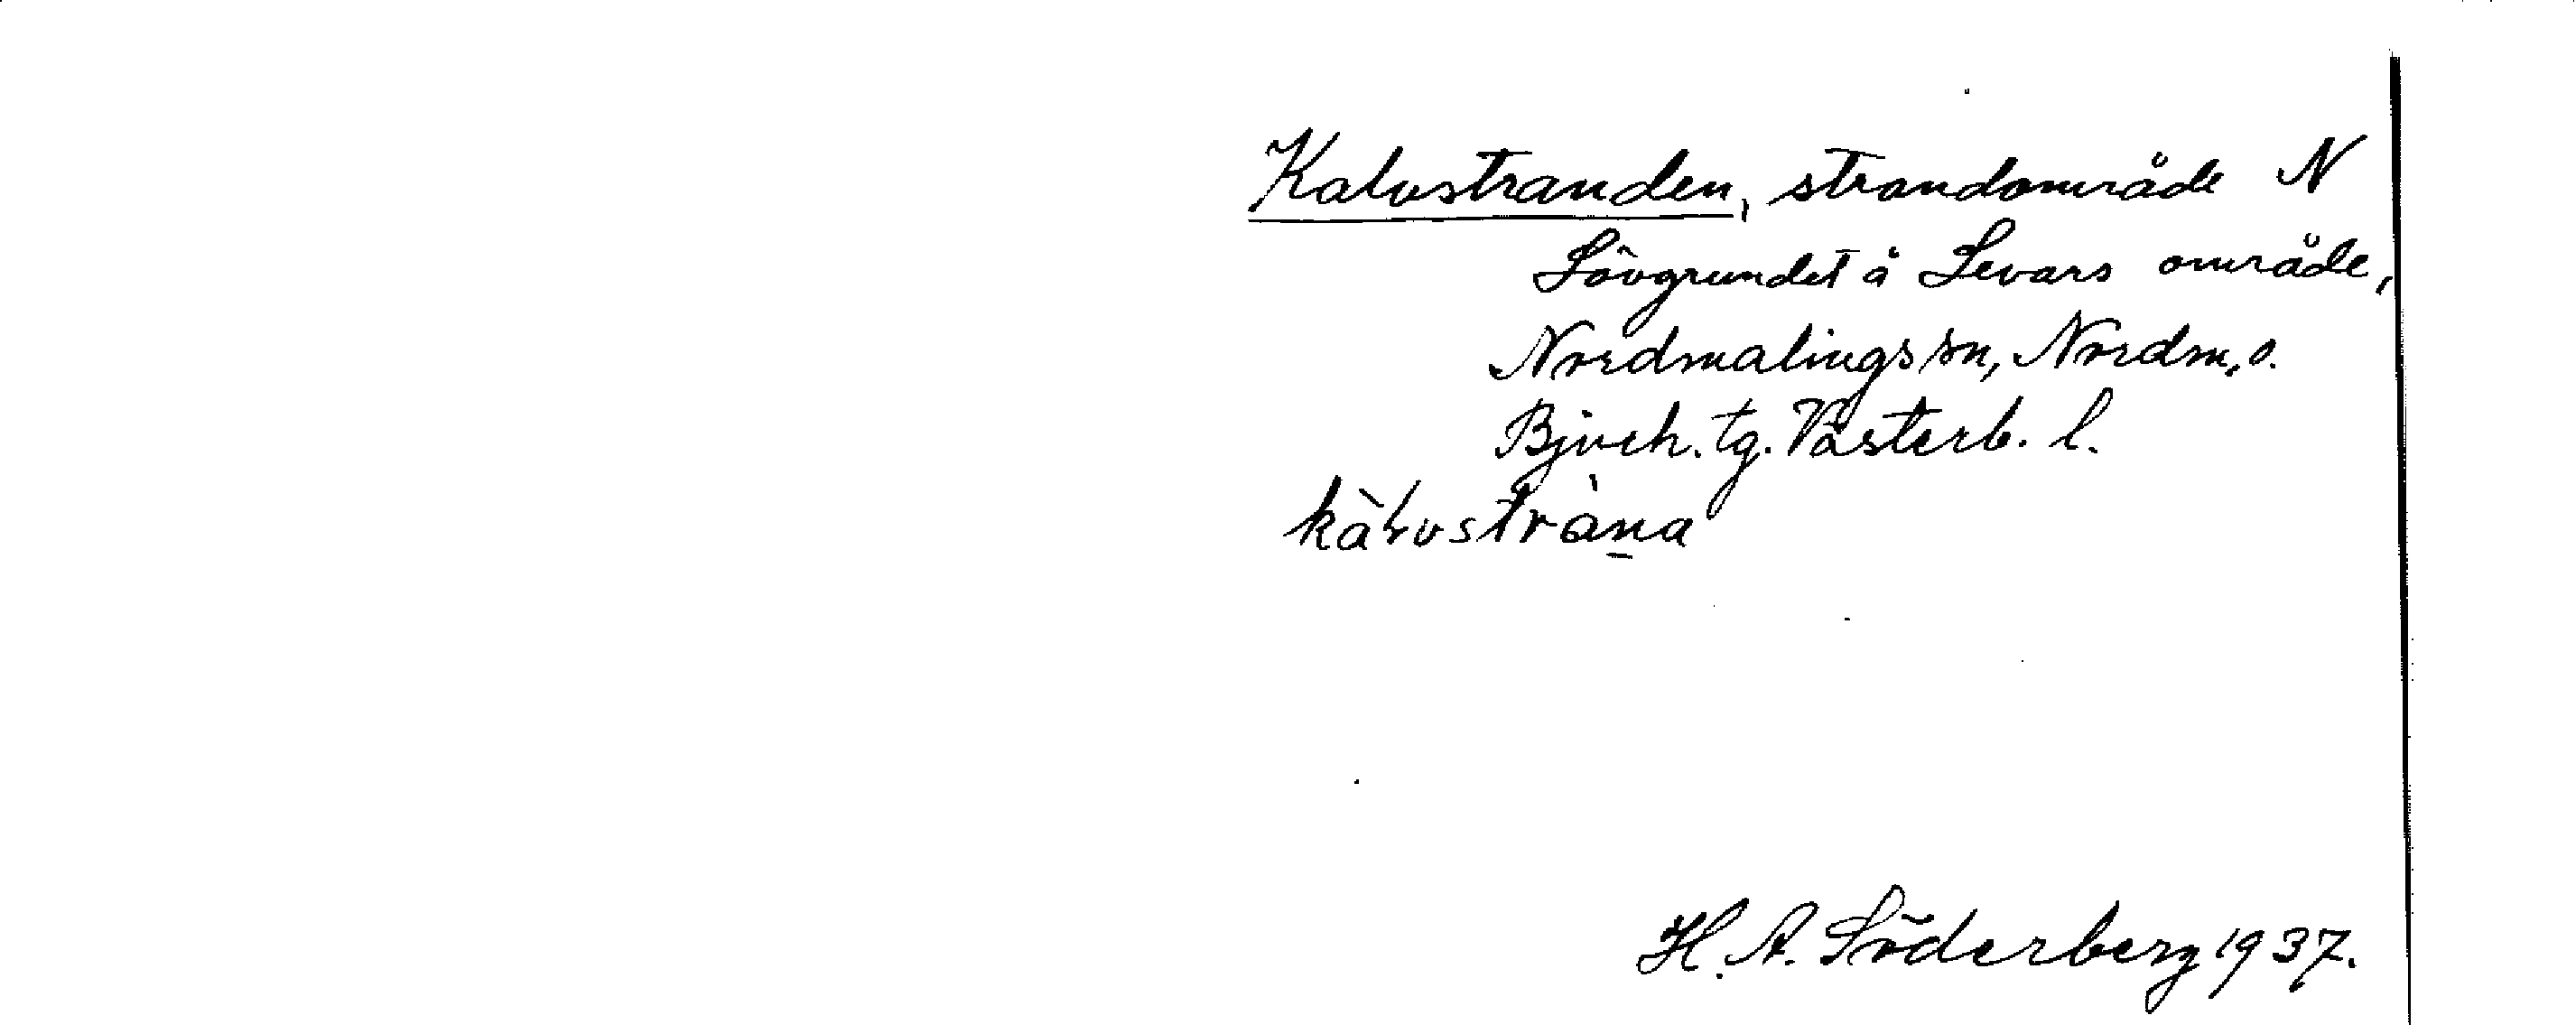 Kalvstranden, strandområde N
Lövgrundet å Levars område,
Nordmalings sn, Nordm. o.
Bjurh. tg. Västerb. l.
H. A. Söderberg 1937.